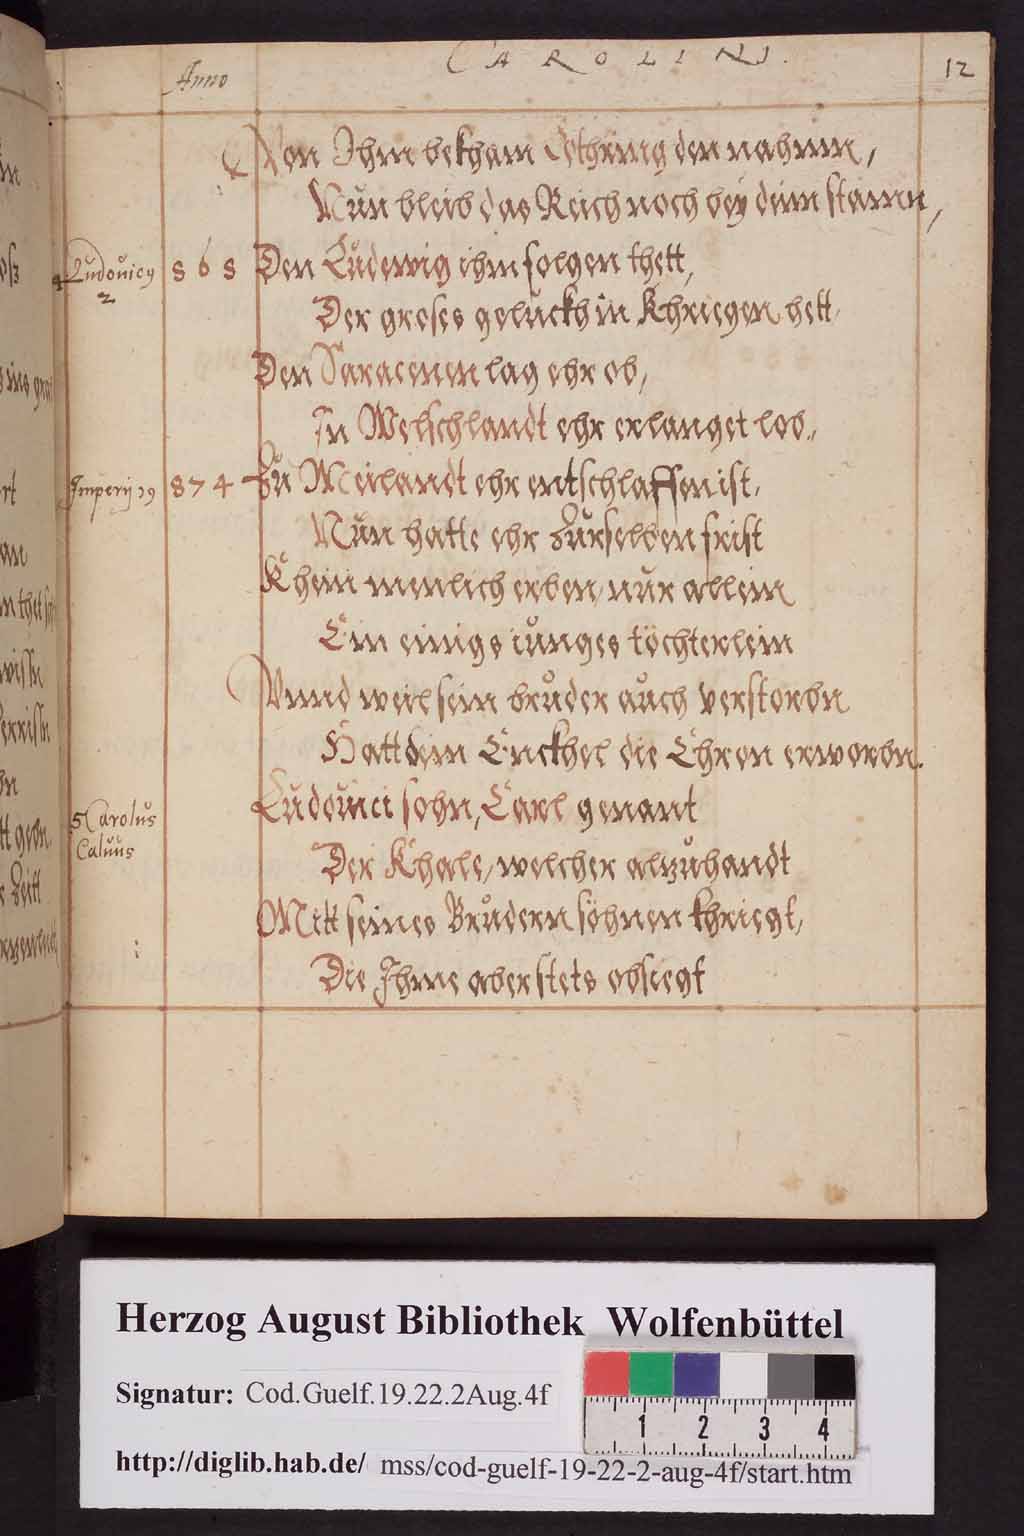 Anno
CAROLINI.
12
Von Ihm bekham Lothring den nahmn,
Nun bleib das Reich noch bey deim stamn,
4 Ludouicus 2
868
Den Ludewig ihm folgen thett,
Der groses geluckh in Khriegen hett.
Den Saracenen lag ehr ob,
In Welschlandt ehr erlanget lob.
Imperij 19
874
Zu Meilandt ehr entschlaffen ist,
Nun hatte ehr zurselben frist
Khein menlich erben, nur allein
Ein einigs iunges töchterlein
Vnnd weil sein bruder auch verstorbn
Hatt dem Enckhel die Ehren erworbn.
5 Carolus
Caluus
Ludouici sohn, Carl genant
Der Khale, welcher alzuhandt
Mitt seines Brudern söhnen khriegt,
Die Ihme aber stets obsiegt
Herzog August Bibliothek Wolfenbüttel
Signatur: Cod.Guelf.19.22.2Aug.4f
1 2 3 4
http://diglib.hab.de/ mss/cod-guelf-19-22-2-aug-4f/start.htm